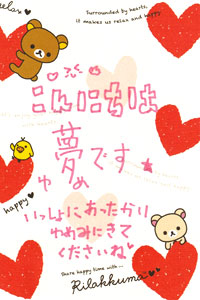 relax
Surrounded by hearts,
it makes us relax and happy
こんにちは
夢です★
ゆめ
いっしょにあったかい
ゆめみにきて
くださいね
happy
Share happy time with...
Rilakkuma